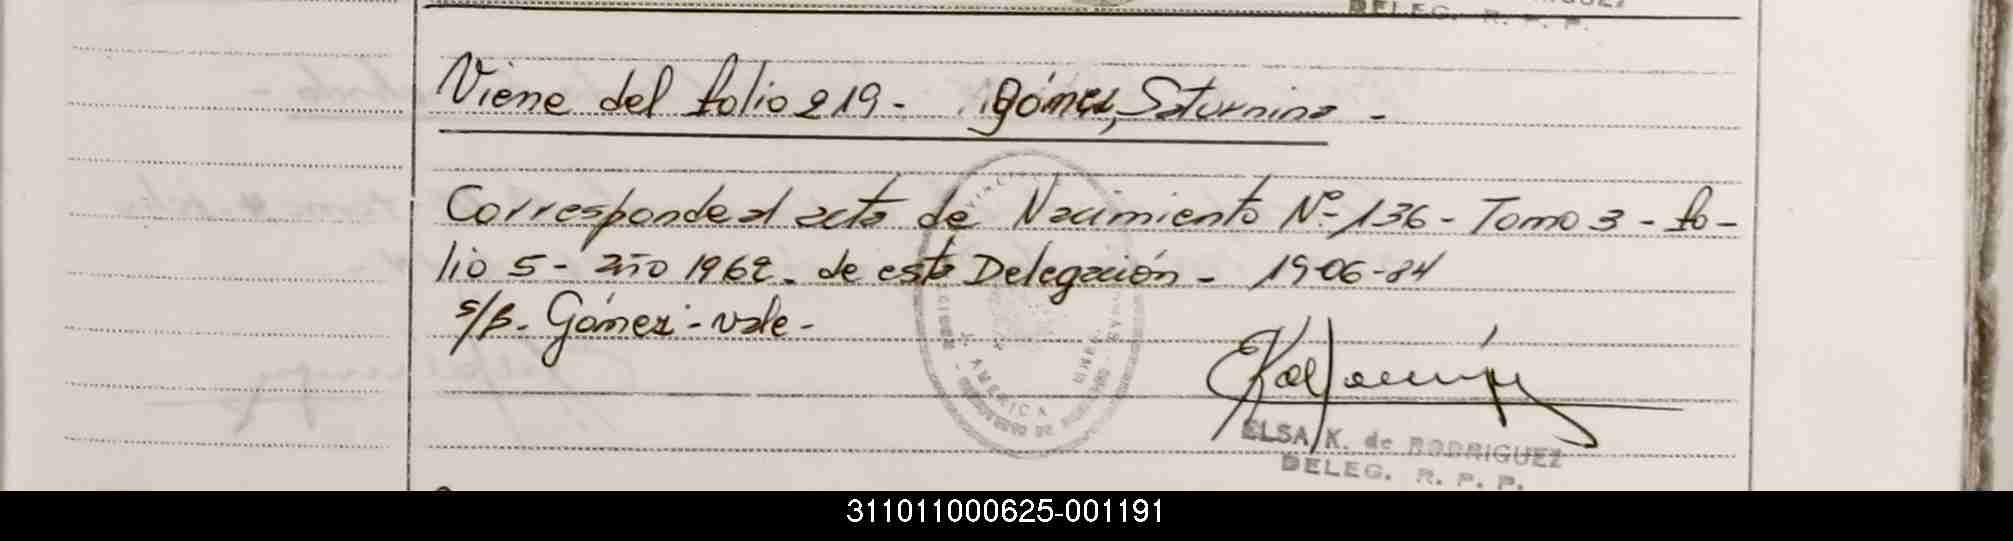 DELEG. R. P. P.
Viene del folio 219 - Gómez, Saturnino -
Corresponde al acta de Nacimiento Nº 136 - Tomo 3 - fo-
lio 5 - año 1962 - de esta Delegación - 19-06-84
s/b. Gómez - vale -
AMERICA
ELSA K. de RODRIGUEZ
DELEG. R. P. P.
311011000625-001191